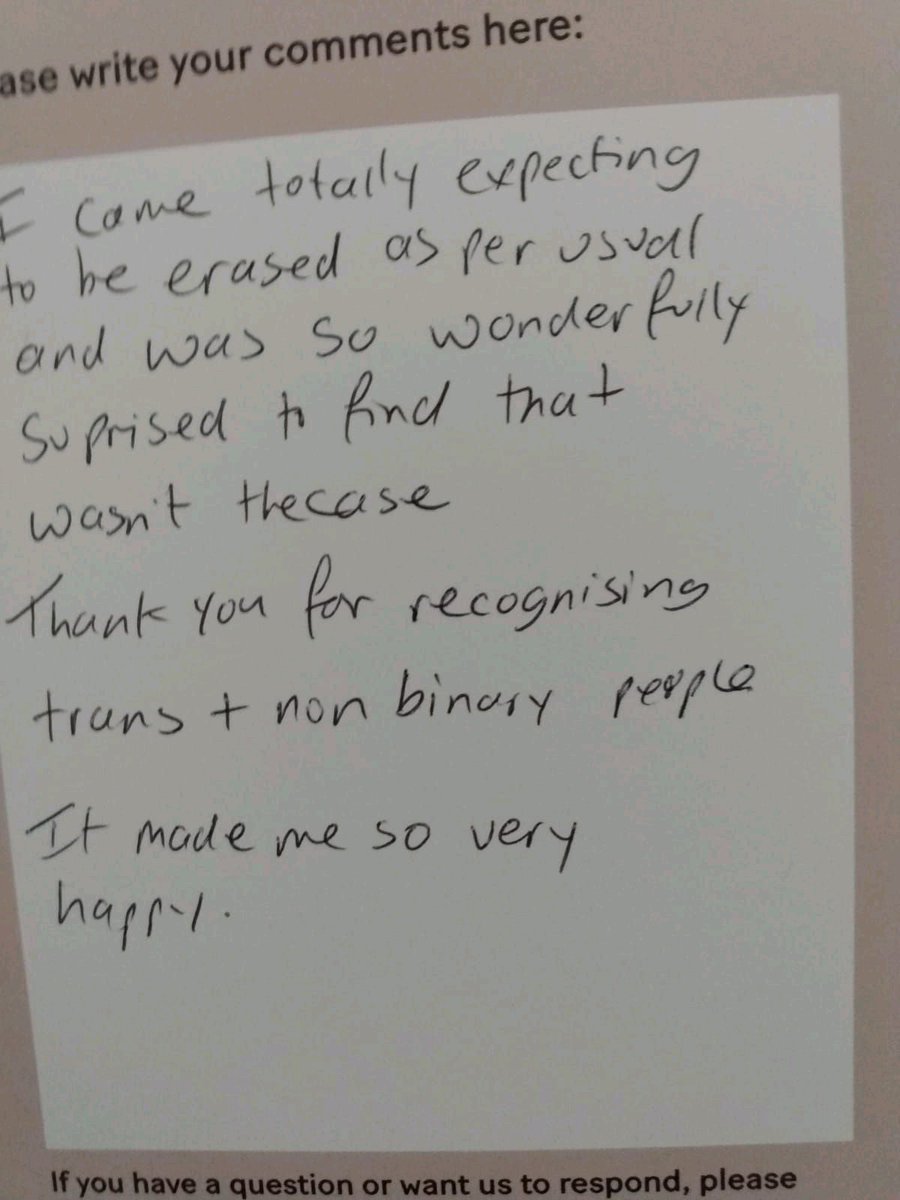 ase write your comments here:
I came totally expecting
to be erased as per usual
and was so wonderfully
suprised to find that
wasn't thecase
Thank you for recognising
trans + non binary people
It made me so very
happy.
If you have a question or want us to respond, please